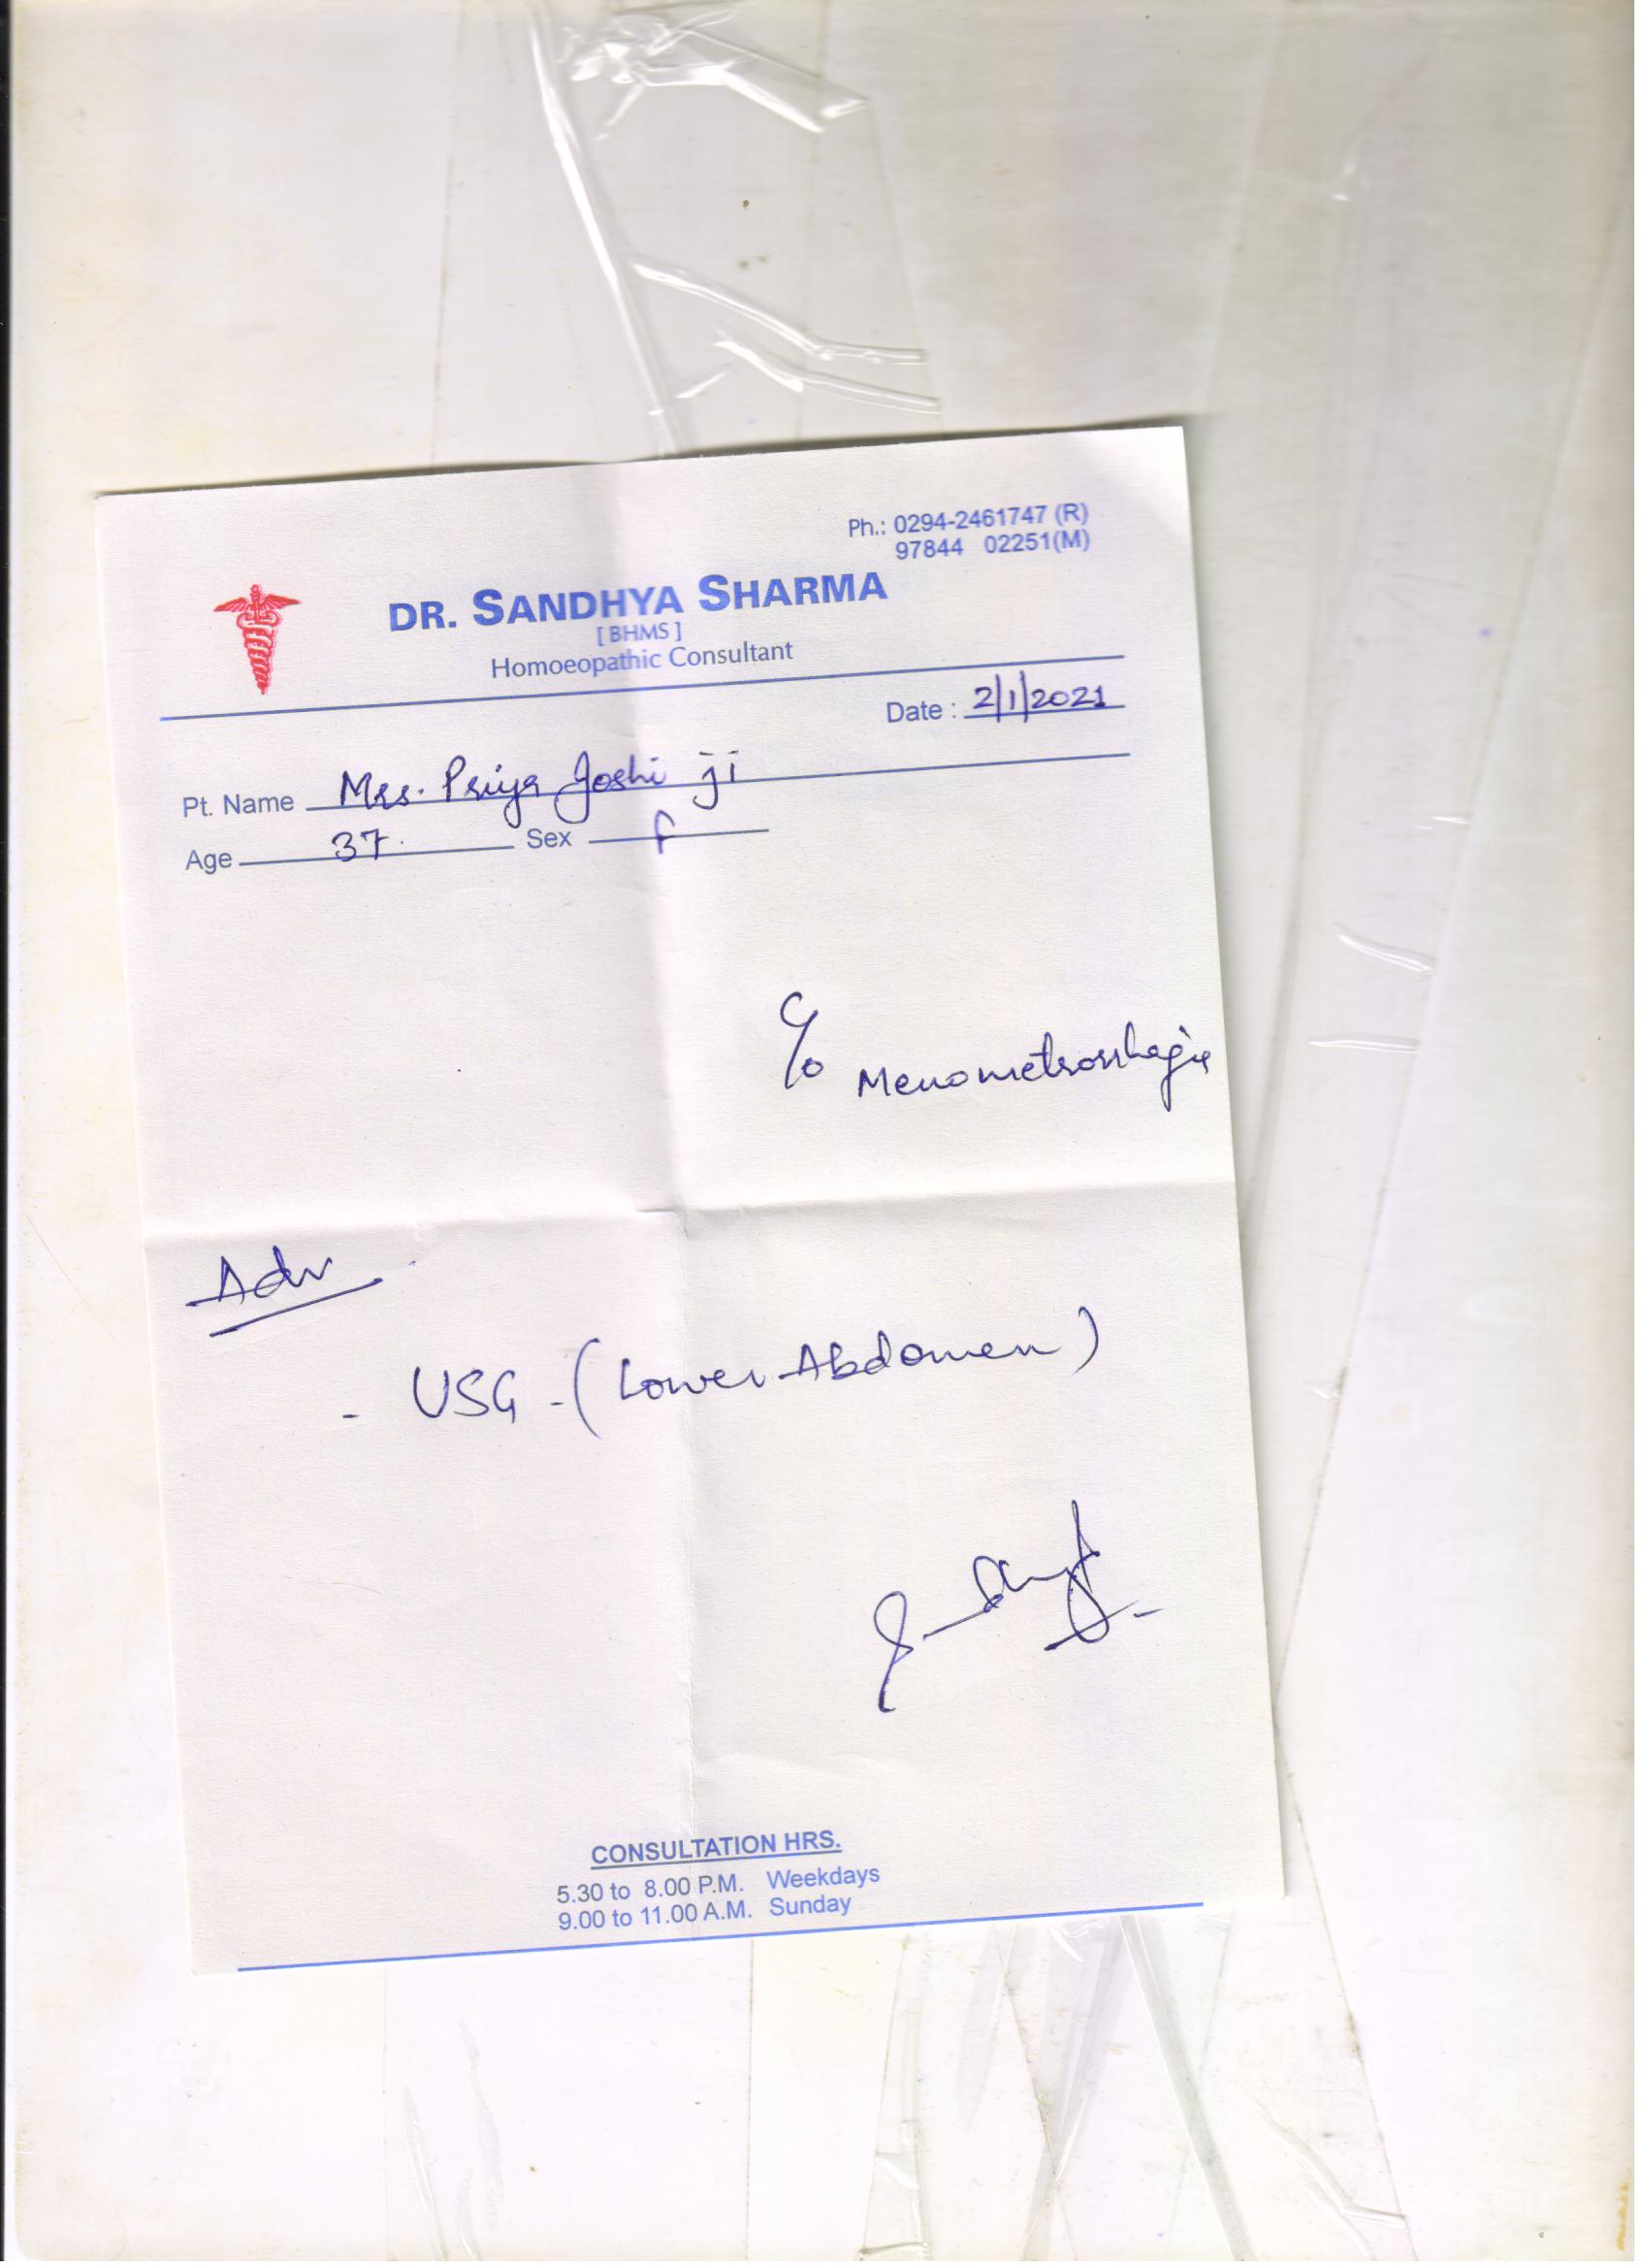 Ph.: 0294-2461747 (R)
97844 02251(M)
DR. SANDHYA SHARMA
[ BHMS ]
Homoeopathic Consultant
Date : 2/1/2021
Pt. Name Mrs. Priya Joshi ji
Age 37. Sex F
C/o Menometrorrhagia
Adv
- USG - (Lower Abdomen)
CONSULTATION HRS.
5.30 to 8.00 P.M. Weekdays
9.00 to 11.00 A.M. Sunday